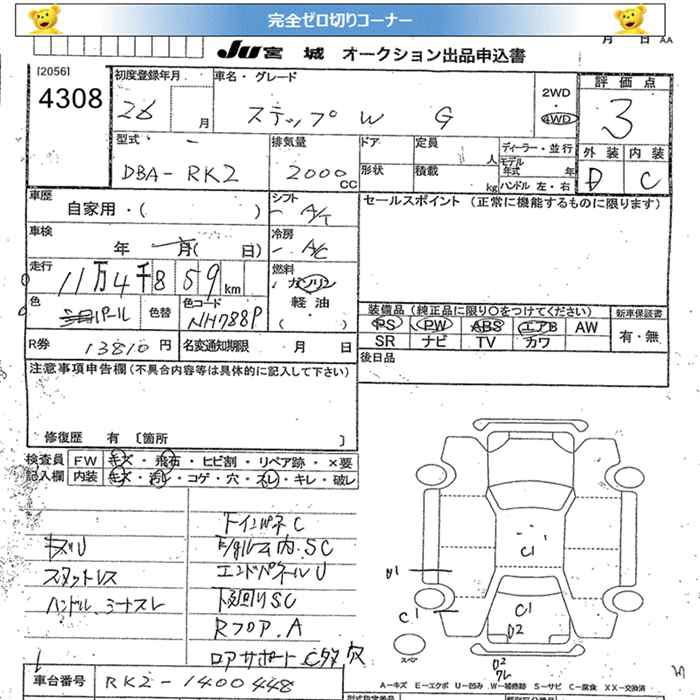 完全ゼロ切りコーナー
JU 宮城 オークション出品申込書
月 日 AA
[2056]
4308
初度登録年月
26 月
車名・グレード
ステップW G
2WD
・
4WD
評価点
3
外装 内装
D C
型式
DBA-RK2
排気量
2000 CC
ドア
形状
定員 人
積載 kg
ディーラー・並行
モデル年式 年
ハンドル 左・右
車歴
自家用・( )
シフト
A/T
車検
年 月( 日)
冷房
A/C
走行
11万4千859km
燃料
ガソリン
軽油
・( )
色
パール
色替
色コード
NH788P
R券 13810円
名変通知期限 月 日
セールスポイント (正常に機能するものに限ります)
装備品 (純正品に限り○をつけてください)
新車保証書
PS PW ABS エアB AW
SR ナビ TV カワ
有・無
後日品
注意事項申告欄(不具合内容等は具体的に記入して下さい)
修復歴 有 〔箇所 〕
検査員
記入欄
FW キズ・飛石・ヒビ割・リペア跡・×要
内装 キズ・汚レ・コゲ・穴・スレ・キレ・破レ
キズU
スタットレス
ハンドル、ミナスレ
下インパネC
F/gルーム内.SC
エンドパネールU
下廻りSC
Rフロア.A
ロアサポートCタタ穴
C1
U1
C1
C1
D2
スペア
D2
ワレ
車台番号 RK2-1400448
A-キズ E-エクボ U-凹み W-補修跡 S-サビ C-腐食 XX-交換済